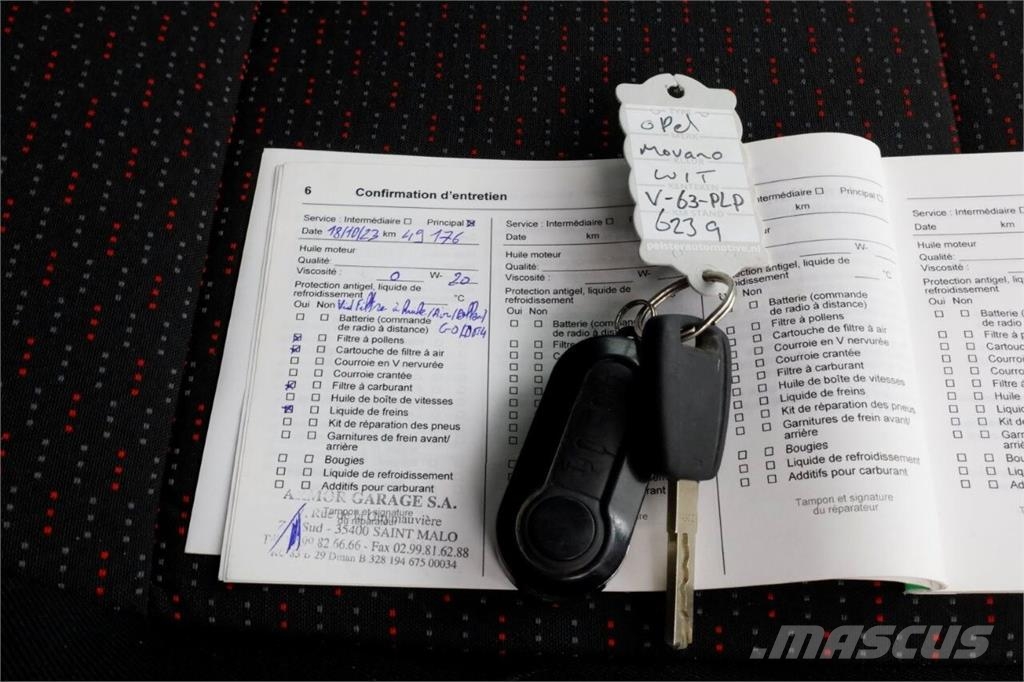 opel
Movano
WIT
KENTEKEN
V-63-PLP
KM STAND
6239
pelsterautomotive.nl
6 Confirmation d'entretien
Service : Intermédiaire Principal
Date 18/10/23 km 49 176
Huile moteur
Qualité:
Viscosité : 0 W- 20
Protection antigel, liquide de
refroidissement °C
Oui Non
Batterie (commande
de radio à distance)
Filtre à pollens
Cartouche de filtre à air
Courroie en V nervurée
Courroie crantée
Filtre à carburant
Huile de boîte de vitesses
Liquide de freins
Kit de réparation des pneus
Garnitures de frein avant/
arrière
Bougies
Liquide de refroidissement
Additifs pour carburant
Tampon et signature
du réparateur
ARMOR GARAGE S.A.
Sud - 35400 SAINT MALO
99.82.66.66 - Fax 02.99.81.62.88
B 29 Dinan B 328 194 675 00034
Service : Intermédiaire
Date km
Huile moteur
Qualité:
Viscosité :
Protection antigel, liquide de
refroidissement
Oui Non
Batterie (commande
de radio à distance)
Filtre
Intermédiaire Principal
km
W-
Protection antigel, liquide de
refroidissement °C
Non
Batterie (commande
de radio à distance)
Filtre à pollens
Cartouche de filtre à air
Courroie en V nervurée
Courroie crantée
Filtre à carburant
Huile de boîte de vitesses
Liquide de freins
Kit de réparation des pneus
Garnitures de frein avant/
arrière
Bougies
Liquide de refroidissement
Additifs pour carburant
Tampon et signature
du réparateur
Service : Intermédiaire
Date
Huile moteur
Qualité:
Viscosité :
Protection antigel,
refroidissement
Oui Non
Batterie
de radio
Filtre à p
Cartouche
Courroie
Courroie
Filtre à
Huile
Liquide
Kit de
Garni
arrière
Bou
Liqu
Add
MASCUS